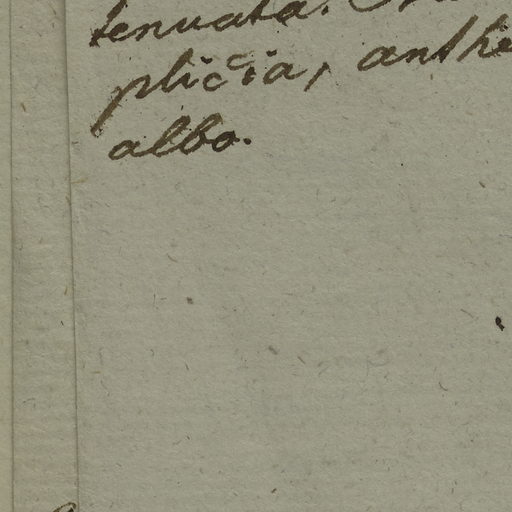 tenuata.
plicia, anthe
albo.